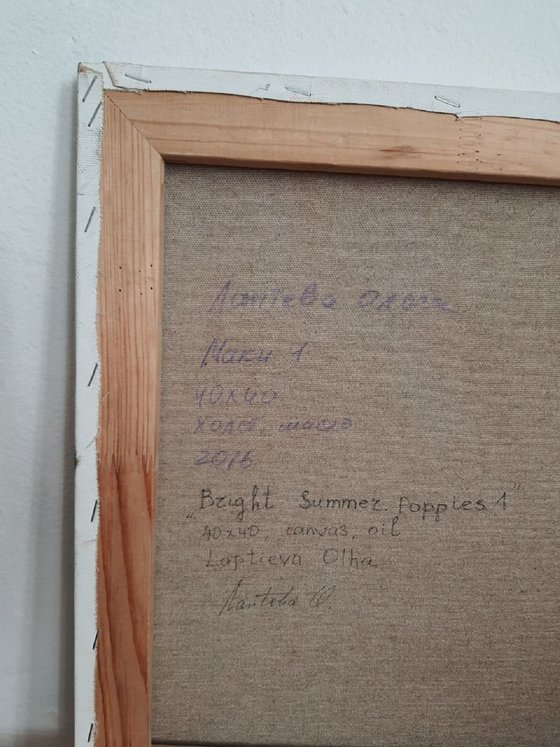 Лаптева Ольга
Маки 1
40x40
холст, масло
2016
„Bright Summer. Poppies 1"
40x40, canvas, oil
Laptieva Olha
Лаптева О.